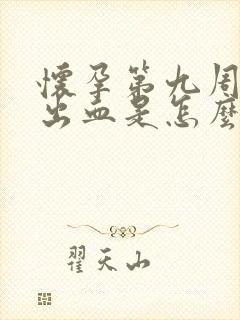 懷孕第九周
出血是怎麼
翟天山